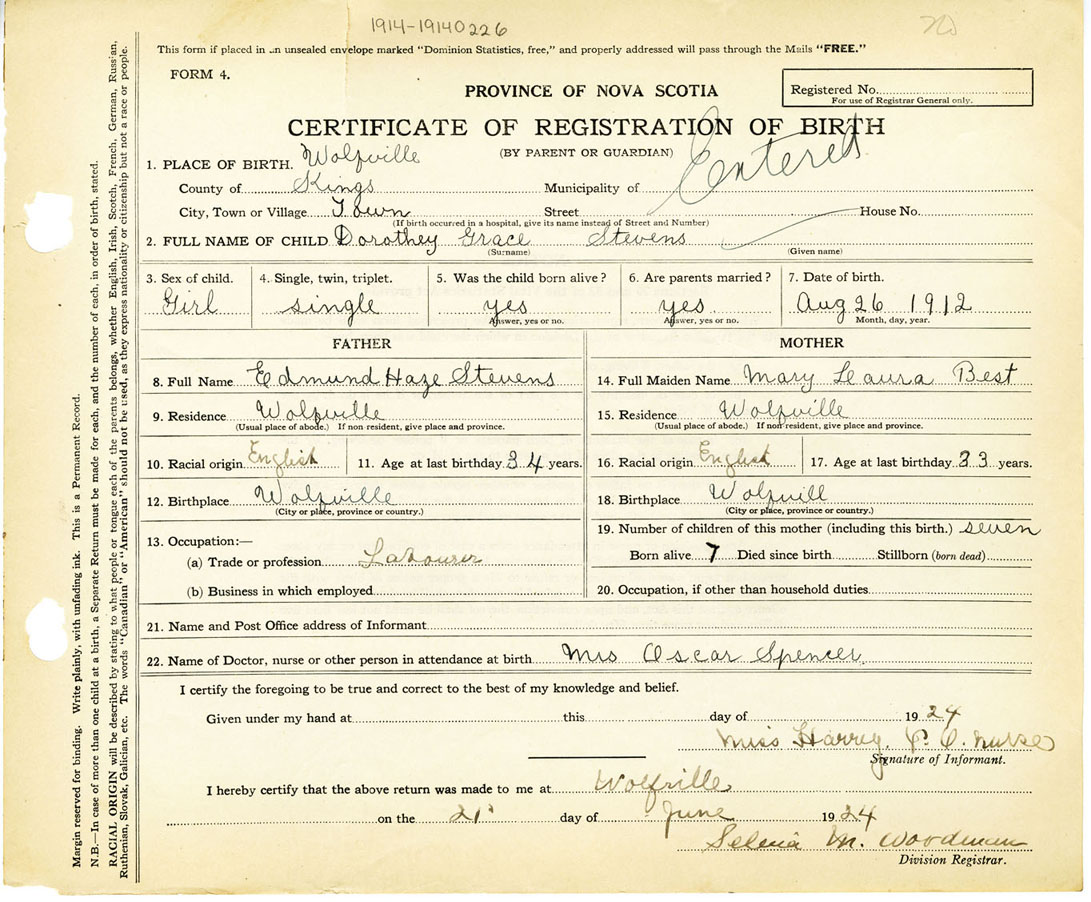 1914-19140226
This form if placed in an unsealed envelope marked "Dominion Statistics, free," and properly addressed will pass through the Mails "FREE."
FORM 4.
PROVINCE OF NOVA SCOTIA
Registered No.
For use of Registrar General only.
CERTIFICATE OF REGISTRATION OF BIRTH
(BY PARENT OR GUARDIAN)
Entered
1. PLACE OF BIRTH. Wolfville
County of Kings Municipality of
City, Town or Village Town Street House No.
(If birth occurred in a hospital, give its name instead of Street and Number)
2. FULL NAME OF CHILD Dorothey Grace Stevens
(Surname) (Given name)
3. Sex of child. 4. Single, twin, triplet. 5. Was the child born alive? 6. Are parents married? 7. Date of birth.
Girl single yes yes Aug 26 1912
Answer, yes or no. Answer, yes or no. Month, day, year.
FATHER MOTHER
8. Full Name Edmund Haze Stevens 14. Full Maiden Name Mary Leaura Best
9. Residence Wolfville 15. Residence Wolfville
(Usual place of abode.) If non-resident, give place and province. (Usual place of abode.) If non-resident, give place and province.
10. Racial origin English 11. Age at last birthday 34 years. 16. Racial origin English 17. Age at last birthday 33 years.
12. Birthplace Wolfville 18. Birthplace Wolfvill
(City or place, province or country.) (City or place, province or country.)
13. Occupation:— 19. Number of children of this mother (including this birth.) seven
(a) Trade or profession Labourer Born alive 7 Died since birth Stillborn (born dead)
(b) Business in which employed 20. Occupation, if other than household duties
21. Name and Post Office address of Informant
22. Name of Doctor, nurse or other person in attendance at birth Mrs Oscar Spencer
I certify the foregoing to be true and correct to the best of my knowledge and belief.
Given under my hand at this day of 1924
Miss Harrey, P. O. nurse
Signature of Informant.
I hereby certify that the above return was made to me at Wolfville
on the 21 day of June 1924
Selena M. Woodman
Division Registrar.
Margin reserved for binding. Write plainly, with unfading ink. This is a Permanent Record.
N.B.—In case of more than one child at a birth, a Separate Return must be made for each, and the number of each, in order of birth, stated.
RACIAL ORIGIN will be described by stating to what people or tongue each of the parents belongs, whether English, Irish, Scotch, French, German, Russian,
Ruthenian, Slovak, Galician, etc. The words "Canadian" or "American" should not be used, as they express nationality or citizenship but not a race or people.